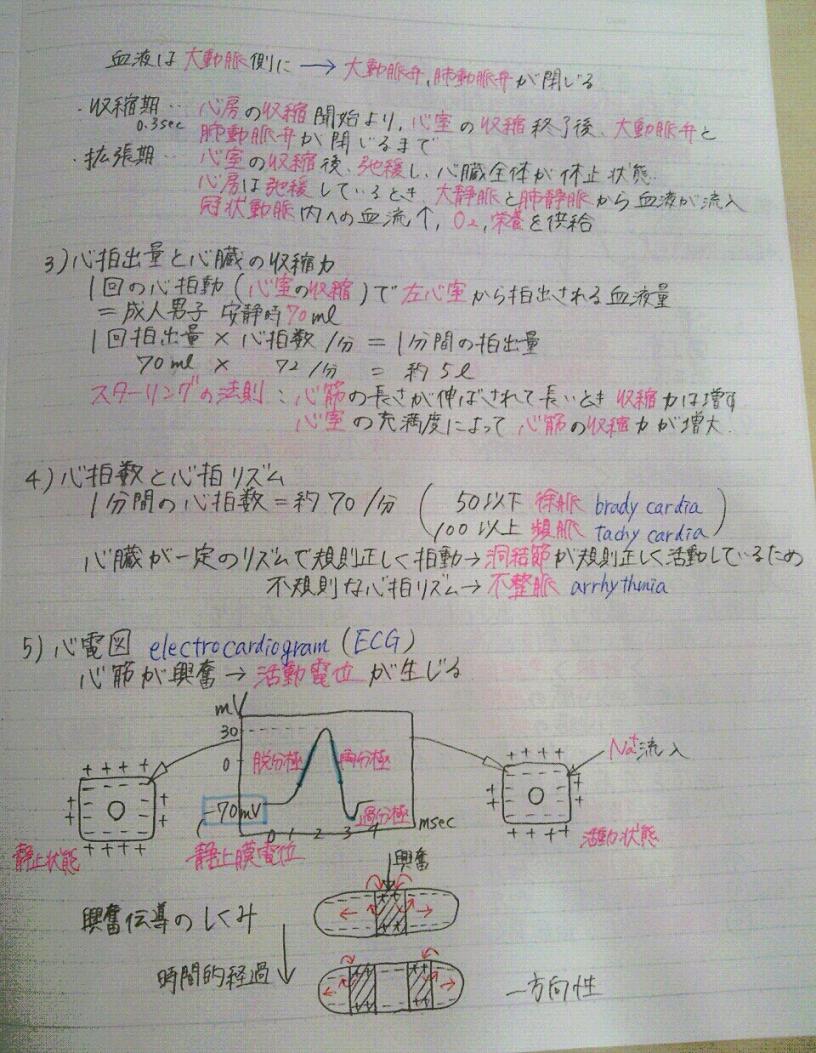 血液は大動脈側に → 大動脈弁,肺動脈弁が閉じる
・収縮期… 心房の収縮開始より,心室の収縮終了後、大動脈弁と
0.3sec 肺動脈弁が閉じるまで
・拡張期… 心室の収縮後、弛緩し、心臓全体が休止状態.
心房は弛緩しているとき、大静脈と肺静脈から血液が流入
冠状動脈内への血流↑, O₂,栄養を供給
3)心拍出量と心臓の収縮力
1回の心拍動(心室の収縮)で左心室から拍出される血液量
=成人男子 安静時70ml
1回拍出量 × 心拍数/分 = 1分間の拍出量
70ml × 72/分 = 約5ℓ
スターリングの法則:心筋の長さが伸ばされて長いとき収縮力は増す
心室の充満度によって心筋の収縮力が増大.
4)心拍数と心拍リズム
1分間の心拍数=約70/分 (50以下 徐脈 brady cardia
100以上 頻脈 tachy cardia)
心臓が一定のリズムで規則正しく拍動→洞結節が規則正しく活動しているため
不規則な心拍リズム→不整脈 arrhythmia
5)心電図 electrocardiogram (ECG)
心筋が興奮→活動電位が生じる
mV
30
0
-70mV
脱分極
再分極
過分極
0 1 2 3 4 msec
静止膜電位
+ + + +
静止状態
Na⁺流入
+ + + +
活動状態
興奮
興奮伝導のしくみ
時間的経過
一方向性